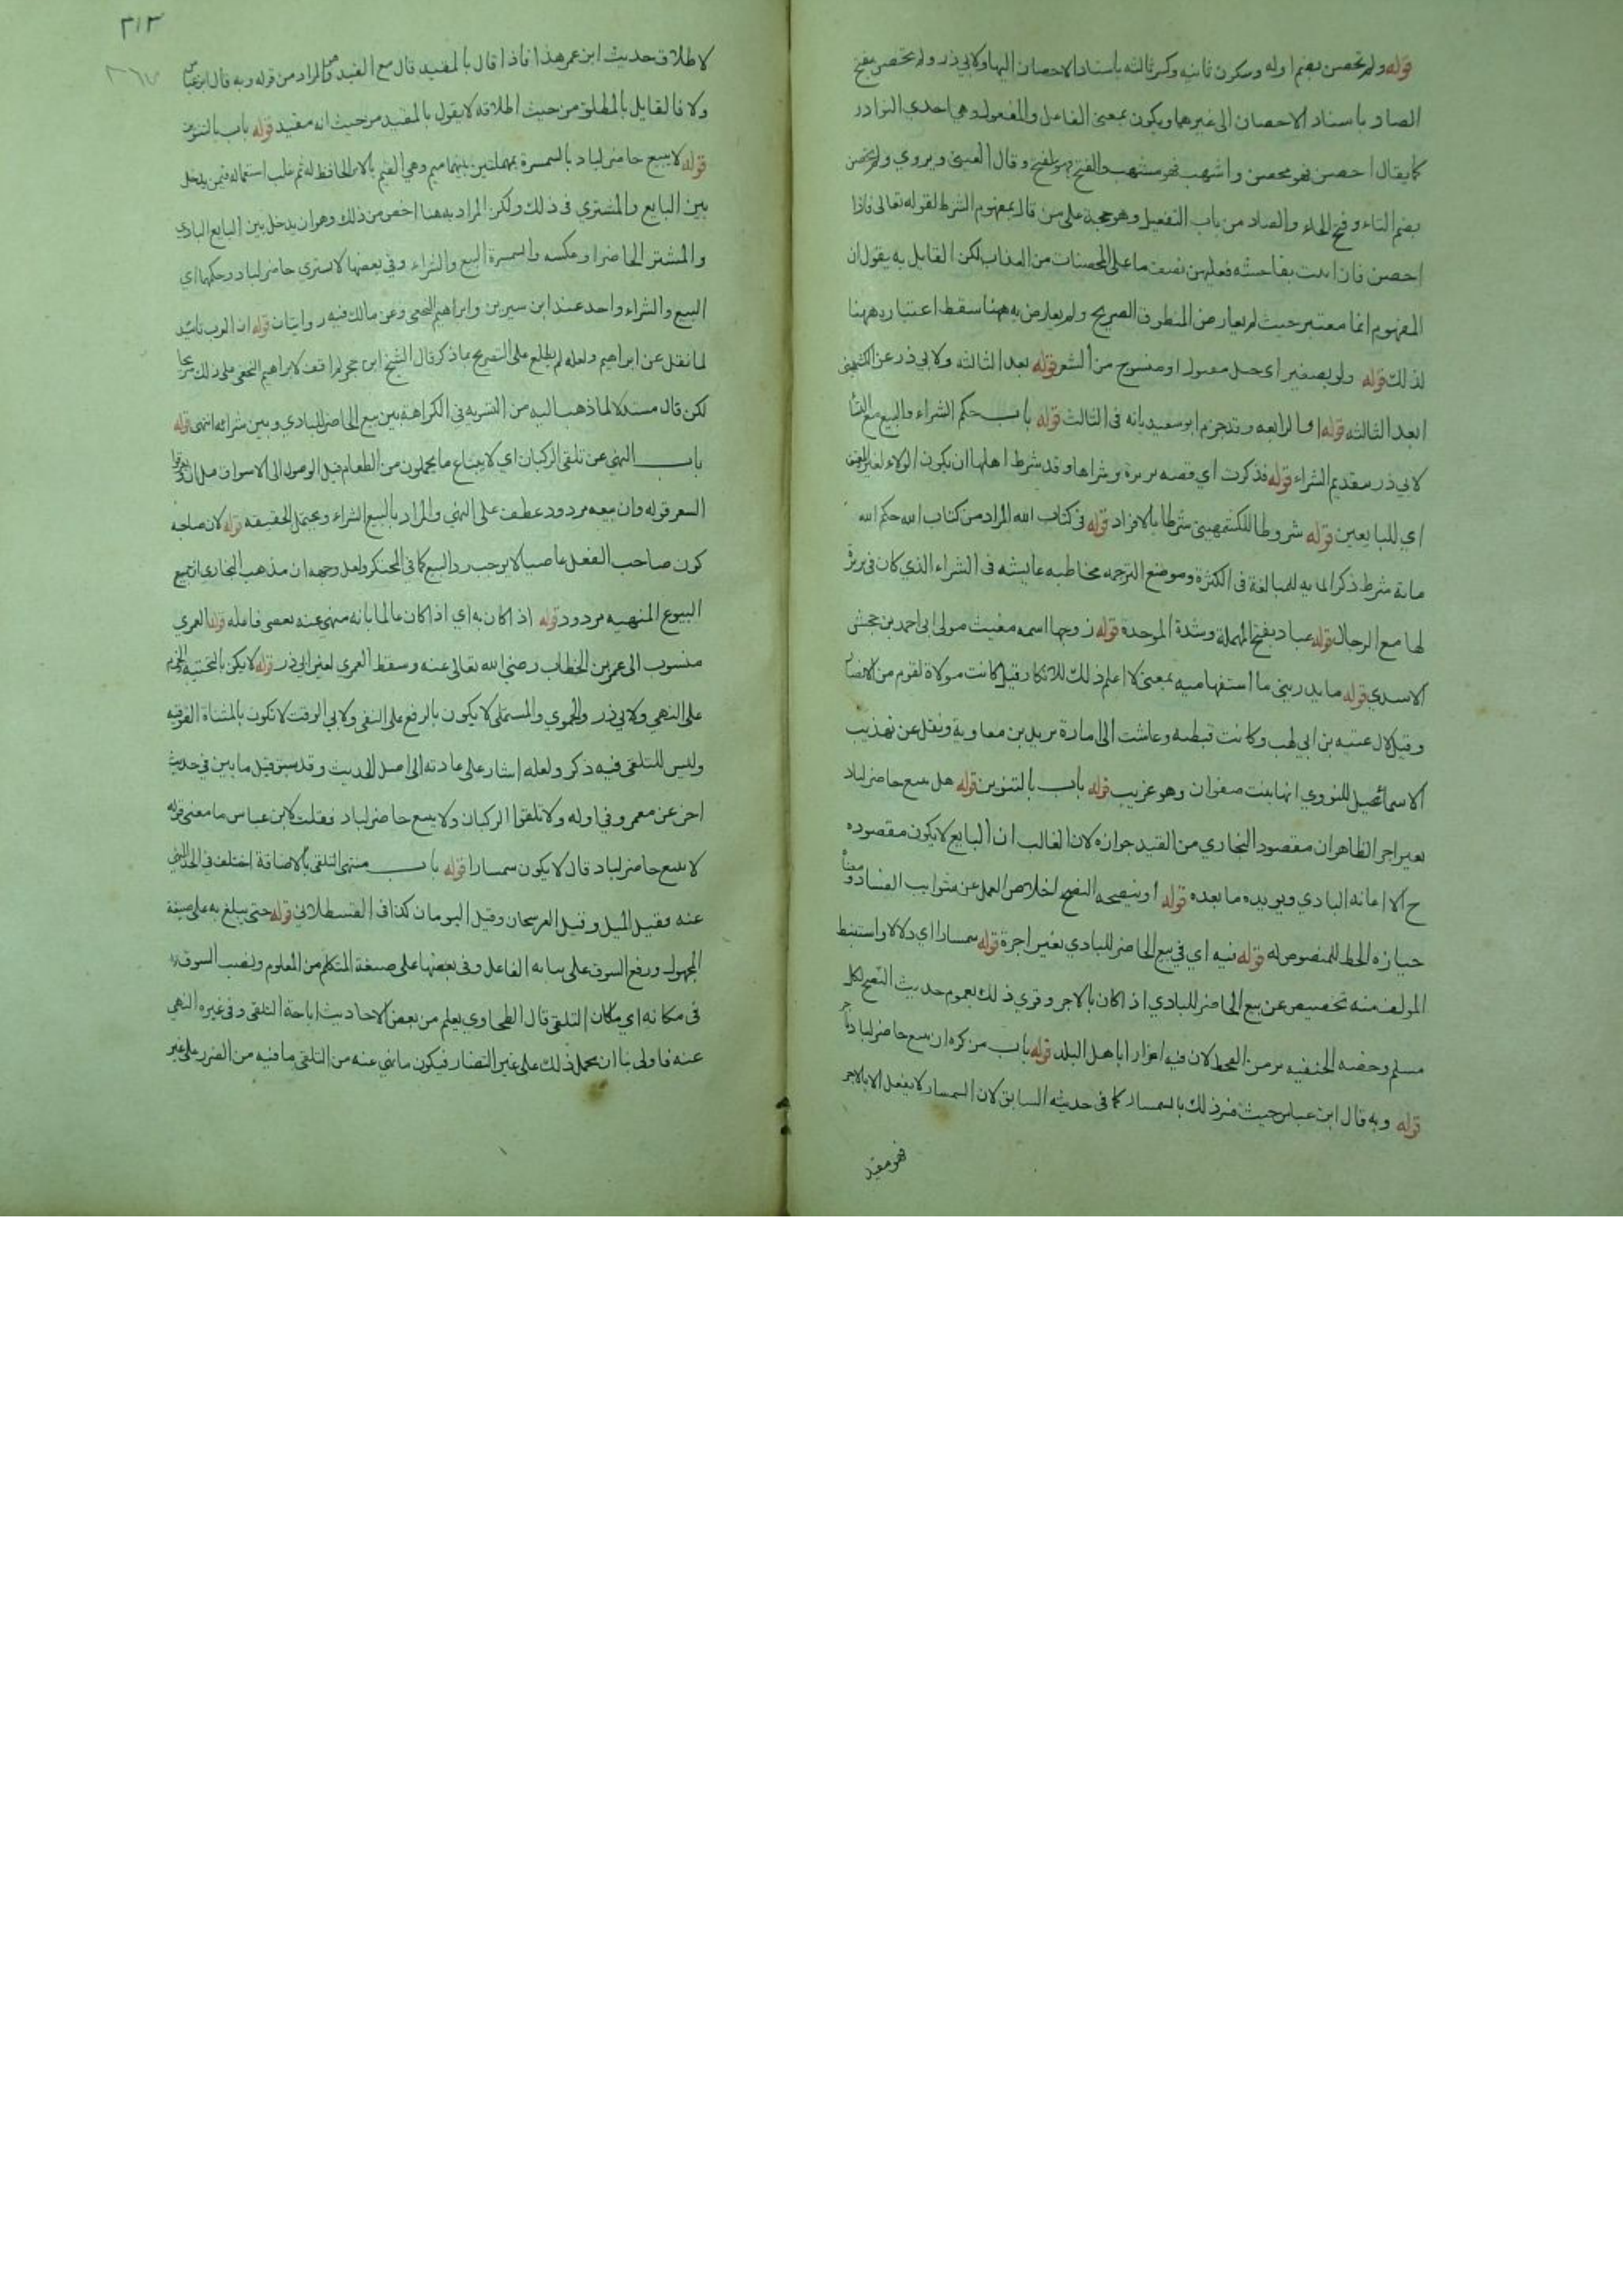 قوله ولم تحصن بضم اوله وسكون ثانيه وكسر ثالثه باسناد الاحصان اليها ولابي ذر ولم تحصن بفتح
الصاد باسناد الاحصان الى غيرها ويكون بمعنى الفاعل والمفعول وهي احدى النوادر
كما يقال احصن فهو محصن واشهب فهو مشهب وقال العيني ويروي ولم تحصن
بضم التاء وفتح الحاء والصاد من باب التفعيل وهو حجة على من قال بمفهوم الشرط لقوله تعالى فاذا
احصن فان اتين بفاحشه فعليهن نصف ما على المحصنات من العذاب لكن القايل به يقول ان
المفهوم انما معتبر حيث لم يعارض المنطوق الصريح ولم يعارض به ههنا سقط اعتباره ههنا
لذلك قوله ولو بضفير اي حبل مفتول او منسوج من الشعر قوله بعد الثالثه ولابي ذر عن الكشميهني
ابعد الثالثه قوله او الرابعه وقد جزم ابو سعيد بانه في الثالث قوله باب حكم الشراء والبيع مع النساء
لابي ذر بتقديم الشراء قوله فذكرت اي قصه بريرة وشراها وقد شرط اهلها ان يكون الولاء لغير المعتق
اي للبايعين قوله شروطا للكشمهيني شرطا بالافراد قوله في كتاب الله المراد من كتاب الله حكم الله
ماية شرط ذكر الماية للمبالغة في الكثرة وموضع الترجمه مخاطبه عايشه في الشراء الذي كان في بريرة
لها مع الرجال قوله عباد بفتح المهملة وشدة الموحدة قوله زوجها اسمه مغيث مولى ابي احمد بن جحش
الاسدي قوله ما يدريني ما استفهاميه بمعنى لا اعلم ذلك للانكار وقيل كانت مولاة لقوم من الانصار
وقيل لال عتبه بن ابي لهب وكانت قبطيه وعاشت الى امارة يزيد بن معاوية ونقل عن تهذيب
الاسماء للنووي انها بنت صفوان وهو غريب قوله باب بالتنوين قوله هل يبيع حاضر لباد
بغير اجر الظاهر ان مقصود البخاري من القيد جوازه لان الغالب ان البايع لا يكون مقصوده
ح الا اعانه البادي ويويده ما بعده قوله او ينصحه النصح اخلاص العمل عن شوايب الفساد ومعناه
حيازه الحظ للمنصوص له قوله فيه اي في بيع الحاضر للبادي بغير اجرة قوله سمسارا اي دلالا واستنبط
المولف منه تخصيص عن بيع الحاضر للبادي اذا كان بالاجر وقوي ذلك بعموم حديث النصح لكل
مسلم وخصه الحنفيه بزمن القحط لان فيه اضرارا باهل البلد قوله باب من كره ان يبيع حاضر لباد باجر
قوله وبه قال ابن عباس حيث فسر ذلك بالسمسار كما في حديثه السابق لان السمسار لا يفعل الا بالاجر
فهو مقيد
٣١٣
لاطلاق حديث ابن عمر هذا فاذا قال بالمقيد قال مع القيد والمراد من قوله وبه قال ابن عباس
ولا فالقايل بالمطلق من حيث اطلاقه لا يقول بالمقيد من حيث انه مقيد قوله باب بالتنوين
قوله لا يبيع حاضر لباد بالسمسرة بمهملتين بينهما ميم وهي القيم بالامر الحافظ له ثم غلب استعماله فيمن يدخل
بين البايع والمشتري في ذلك ولكن المراد به هنا اخص من ذلك وهو ان يدخل بين البايع البادي
والمشتر الحاضر او عكسه والسمسرة البيع والشراء وفي بعضها لا يشتري حاضر لباد وحكمها اي
البيع والشراء واحد عند ابن سيرين وابراهيم النخعي وعن مالك فيه روايتان قوله ان العرب تائيد
لما نقل عن ابراهيم ولعله لم يطلع على التصريح بما ذكر قال الشيخ ابن حجر لم اقف لابراهيم النخعي على ذلك صريحا
لكن قال مستدلا لما ذهب اليه من التسويه في الكراهة بين بيع الحاضر للبادي وبين شرائه انتهى قوله
باب النهي عن تلقي الركبان اي لا يبتاع ما يحملون من الطعام قبل الوصول الى الاسواق قبل ان يعرفوا
السعر قوله وان بيعه مردود عطف على النهي والمراد بالبيع الشراء ويحتمل الحقيقه قوله لان صاحبه
كون صاحب الفعل عاصيا لا يوجب رد البيع كما في المحتكر ولعل وجهه ان مذهب البخاري ان جميع
البيوع المنهيه مردود قوله اذا كان به اي اذا كان عالما بانه منهي عنه يعصي فاعله قوله العمري
منسوب الى عمر بن الخطاب رضي الله تعالى عنه وسقط العمري لغير ابي ذر قوله لا يكن بالتحتيه الجزم
على النهي ولابي ذر والحموي والمستملي لا يكون بالرفع على النفي ولابي الوقت لا تكون بالمثناة الفوقيه
وليس للتلقي فيه ذكر ولعله اشار على عادته الى اصل الحديث وقد سبق قبل ما بين في حديث
اخر عن معمر وفي اوله ولا تلقوا الركبان ولا يبيع حاضر لباد فقلت لابن عباس ما معنى قوله
لا يبيع حاضر لباد قال لا يكون سمسارا قوله باب منتهى التلقي بالاضافة اختلف في الحد المنهي
عنه فقيل الميل وقيل الفرسخان وقيل اليومان كذا في القسطلاني قوله حتى يبلغ به على صيغة
المجهول ورفع السوق على نيابه الفاعل وفي بعضها على صيغة المتكلم من المعلوم ونصب السوق
في مكانه اي مكان التلقي قال الطحاوي يعلم من بعض الاحاديث اباحة التلقي وفي غيره النهي
عنه فاولى بنا ان نحمل ذلك على غير التضار فيكون ما نهي عنه من التلقي ما فيه من الضرر على غير